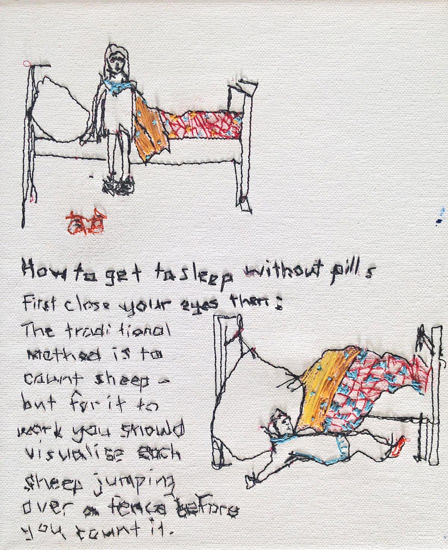 How to get to sleep without pills
First close your eyes then:
The traditional
method is to
count sheep -
but for it to
work you should
visualise each
sheep jumping
over a fence before
you count it.